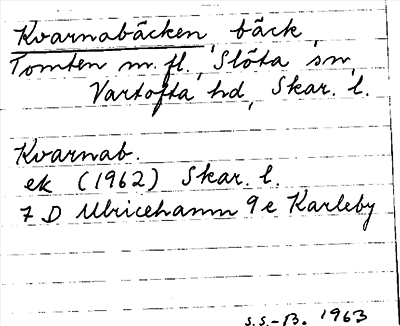 Kvarnabäcken, bäck,
Tomten m. fl., Slöta sn,
Vartofta hd, Skar. l.
Kvarnab.
ek (1962) Skar. l.
7 D Ulricehamn 9e Karleby
S.S.-B. 1963